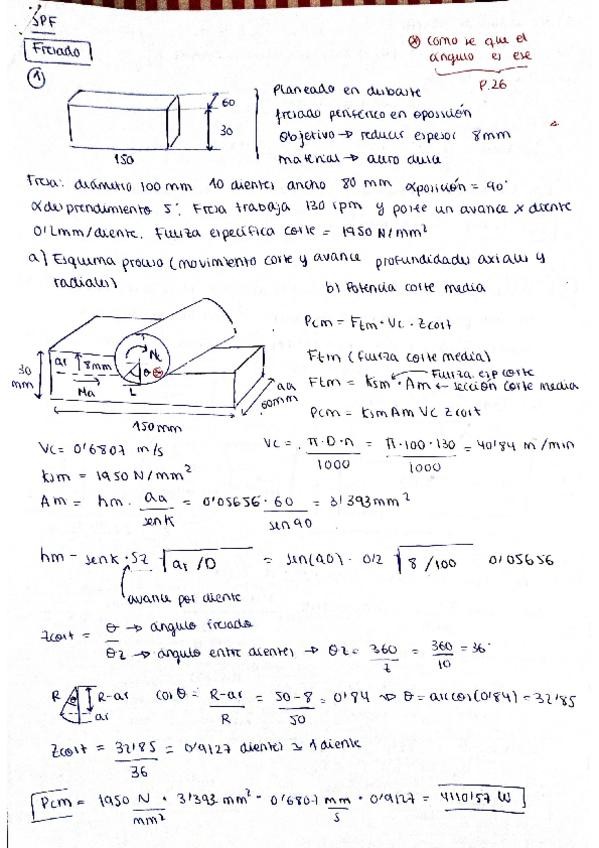 SPF
Fresado
⊛ como se que el
ángulo es ese
P.26
①
60
30
150
Planeado en desbaste
fresado periférico en oposición
Objetivo → reducir espesor 8mm
material → acero dura
Fresa: diámetro 100 mm 10 dientes ancho 80 mm αposición = 90°
αdesprendimiento 5°. Fresa trabaja 130 rpm y posee un avance x diente
0'2mm/diente. Fuerza específica corte = 1950 N/mm²
a) Esquema proceso (movimiento corte y avance profundidades axiales y
radiales)
b) Potencia corte media
30
mm
ar
8mm
Nc
θ
Ma
L
aa
60mm
150mm
Pcm = Ftm · Vc · Zcort
Ftm (fuerza corte media)
Fuerza esp corte
Ftm = Ksm · Am ← sección corte media
Pcm = Ksm Am Vc Zcort
Vc = 0'6807 m/s
Vc = π·D·n / 1000 = π·100·130 / 1000 = 40'84 m/min
Ksm = 1950 N/mm²
Am = hm · aa / senK = 0'05656 · 60 / sen90 = 3'393mm²
hm = senK · Sz √ar/D = sen(90) · 0'2 √8/100 0'05656
avance por diente
Zcort = θ → ángulo fresado
θz → ángulo entre dientes → θz = 360 / z = 360 / 10 = 36°
R
R-ar
ar
cosθ = R-ar / R = 50-8 / 50 = 0'84 → θ = arccos(0'84) = 32'85
Zcort = 32'85 / 36 = 0'9127 dientes ≃ 1 diente
Pcm = 1950 N/mm² · 3'393 mm² · 0'6807 mm/s · 0'9127 = 4110'57 W